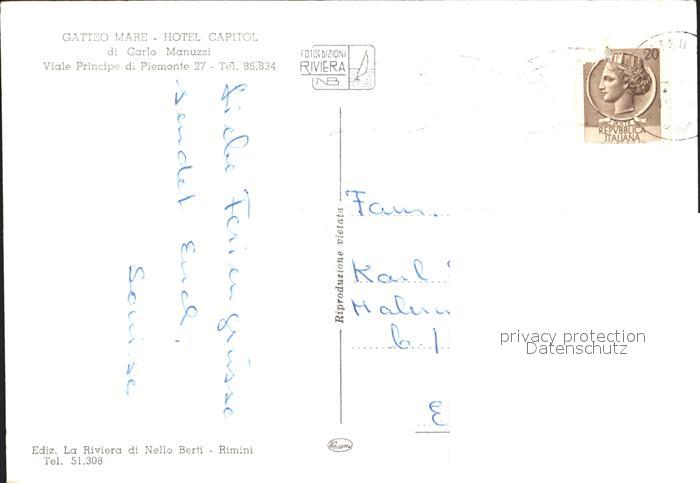 GATTEO MARE - HOTEL CAPITOL
di Carlo Manuzzi
Viale Principe di Piemonte 27 - Tel. 86.834
FOTOEDIZIONI
RIVIERA
NB
20
POSTE
REPVBBLICA
ITALIANA
Liebe Feriengrüsse
sendet Euch
Louise
Riproduzione vietata
Fam.
Karl
privacy protection
Datenschutz
Ediz. La Riviera di Nello Berti - Rimini
Tel. 51.308